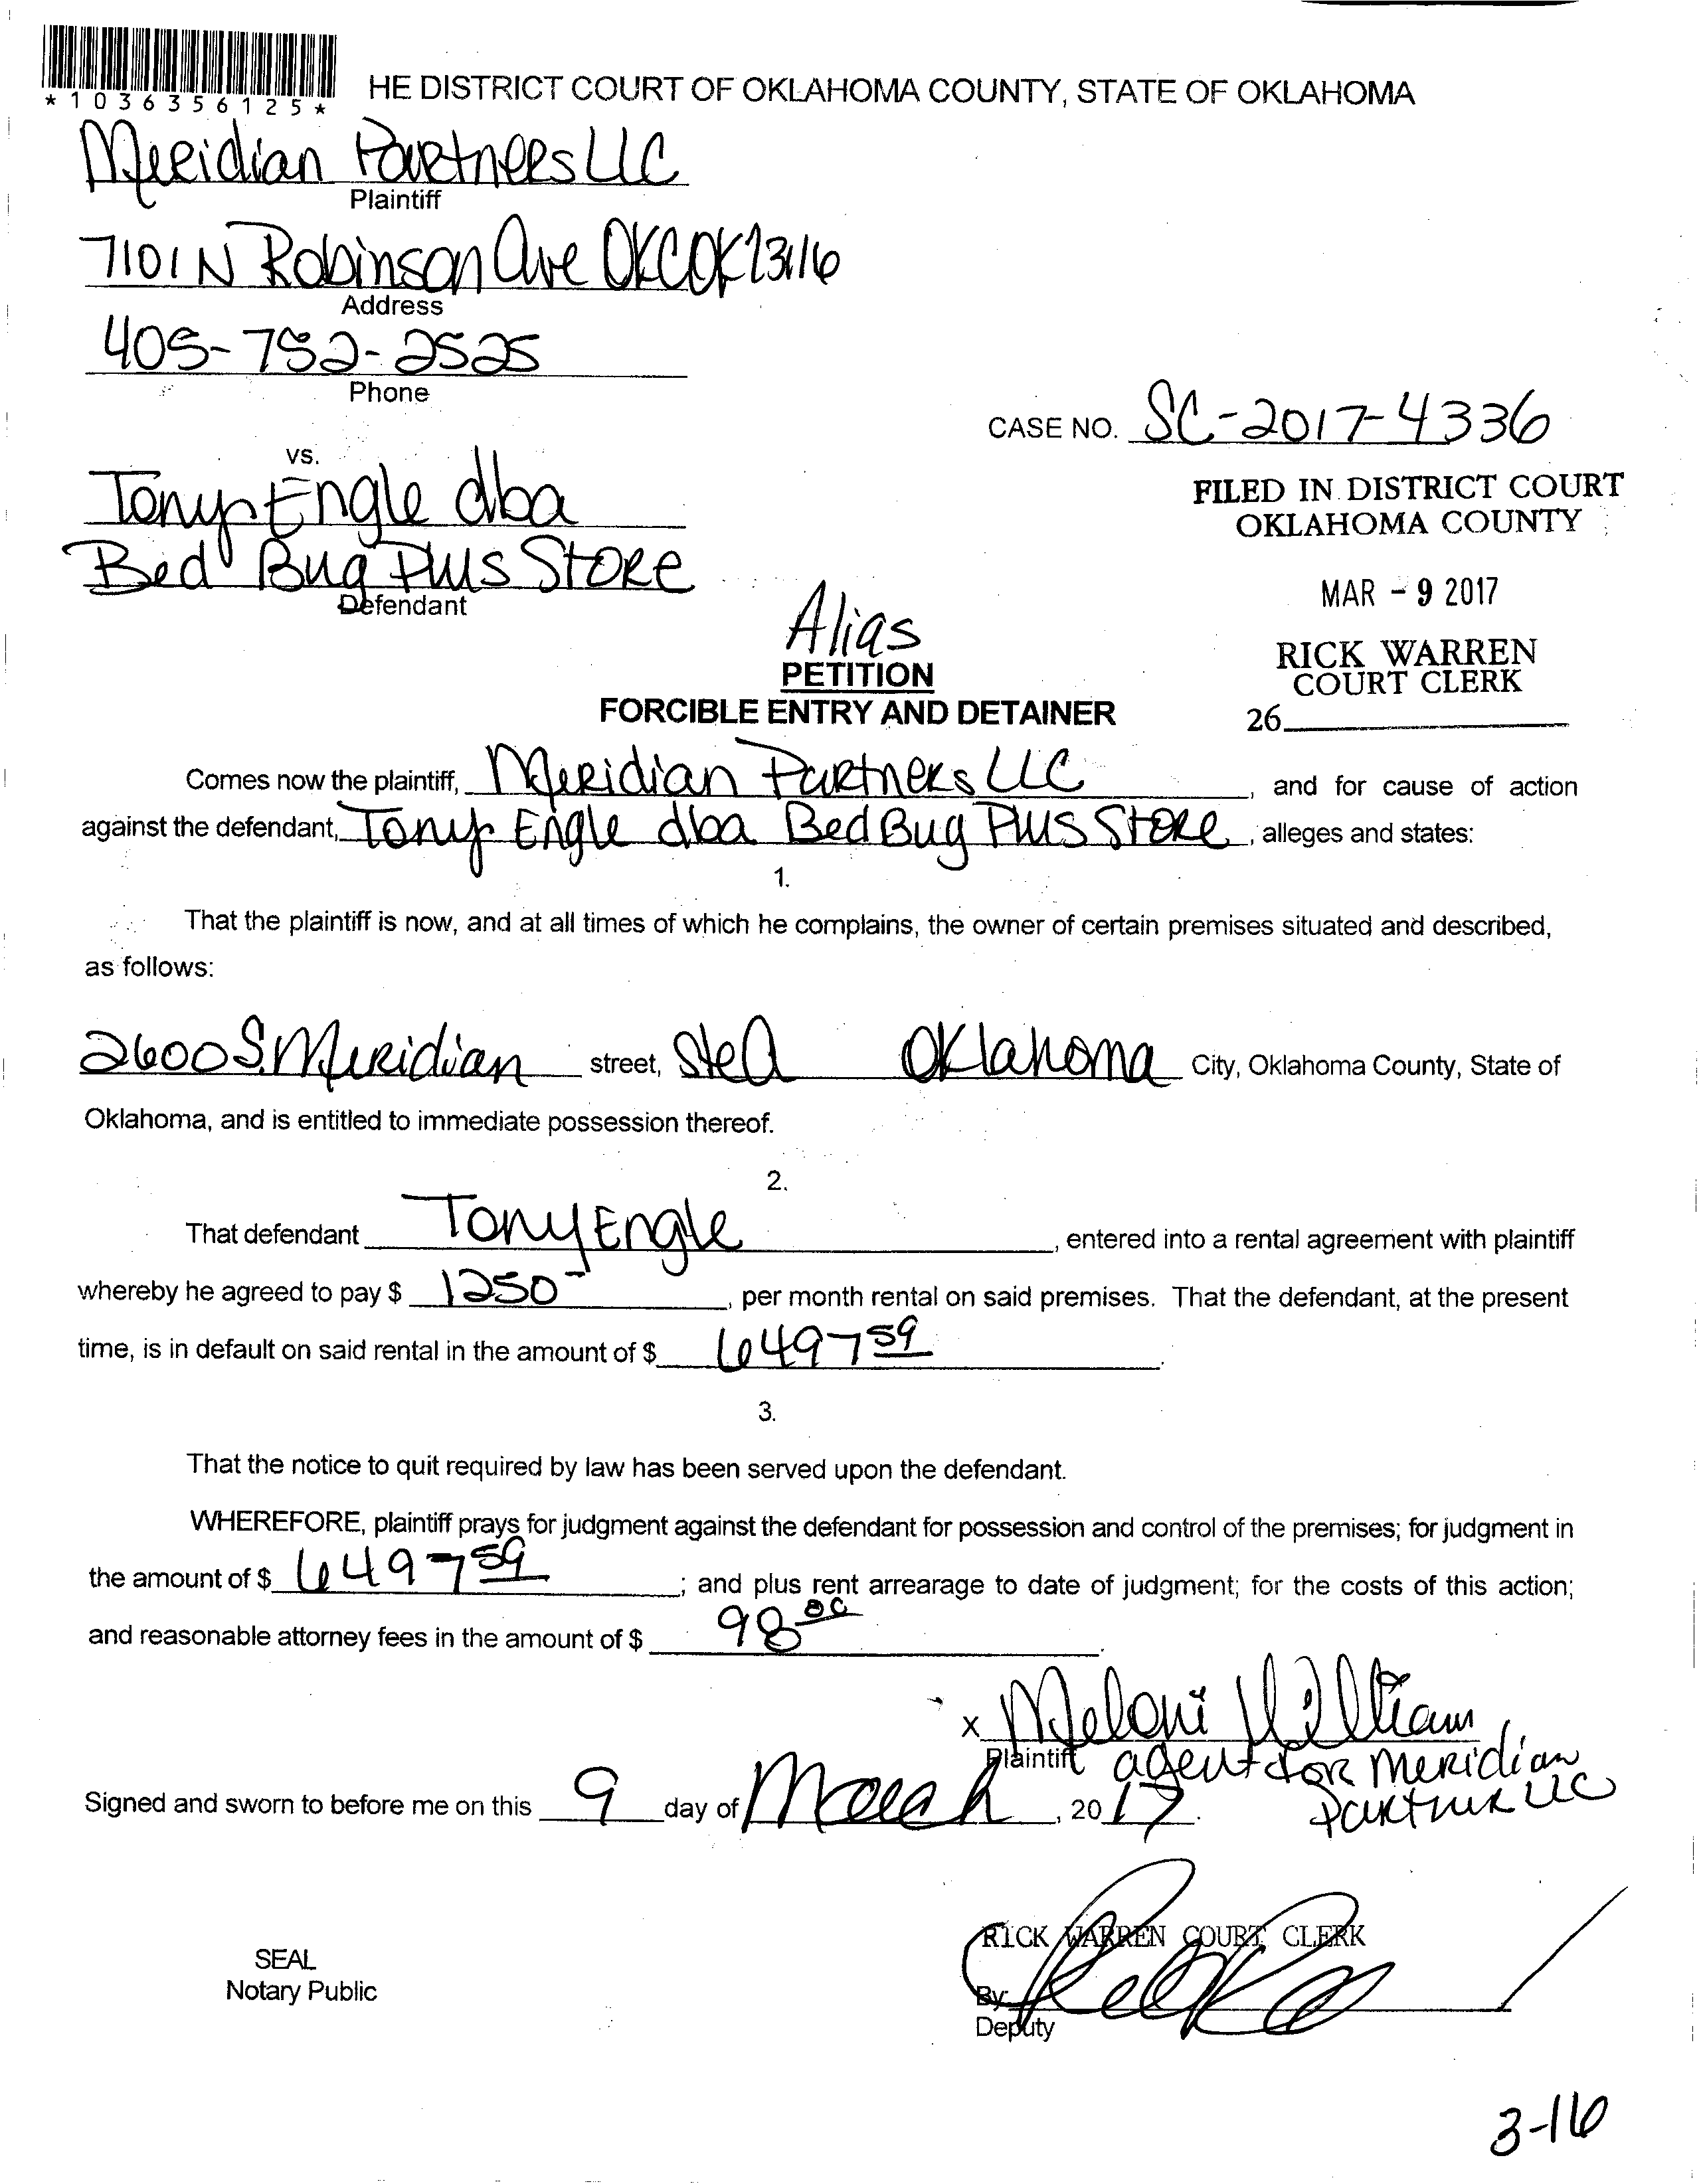 *1036356125*
HE DISTRICT COURT OF OKLAHOMA COUNTY, STATE OF OKLAHOMA
Meridian Partners LLC
Plaintiff
7101 N Robinson Ave OKC OK 73116
Address
405-752-2525
Phone
CASE NO. SC-2017-4336
vs.
FILED IN DISTRICT COURT
OKLAHOMA COUNTY
Tony Engle dba
Bed Bug Plus Store
Defendant
MAR - 9 2017
Alias
RICK WARREN
COURT CLERK
PETITION
FORCIBLE ENTRY AND DETAINER
26
Comes now the plaintiff, Meridian Partners LLC, and for cause of action
against the defendant, Tony Engle dba Bed Bug Plus Store, alleges and states:
1.
That the plaintiff is now, and at all times of which he complains, the owner of certain premises situated and described,
as follows:
2600 S. Meridian street, Ste A Oklahoma City, Oklahoma County, State of
Oklahoma, and is entitled to immediate possession thereof.
2.
That defendant Tony Engle, entered into a rental agreement with plaintiff
whereby he agreed to pay $ 1250-, per month rental on said premises. That the defendant, at the present
time, is in default on said rental in the amount of $ 6497 59.
3.
That the notice to quit required by law has been served upon the defendant.
WHEREFORE, plaintiff prays for judgment against the defendant for possession and control of the premises; for judgment in
the amount of $ 6497 59; and plus rent arrearage to date of judgment; for the costs of this action;
and reasonable attorney fees in the amount of $ 98 00.
x Meloni William
Plaintiff agent for Meridian
Partner LLC
Signed and sworn to before me on this 9 day of March, 2017.
RICK WARREN COURT CLERK
SEAL
Notary Public
By:
Deputy
3-16